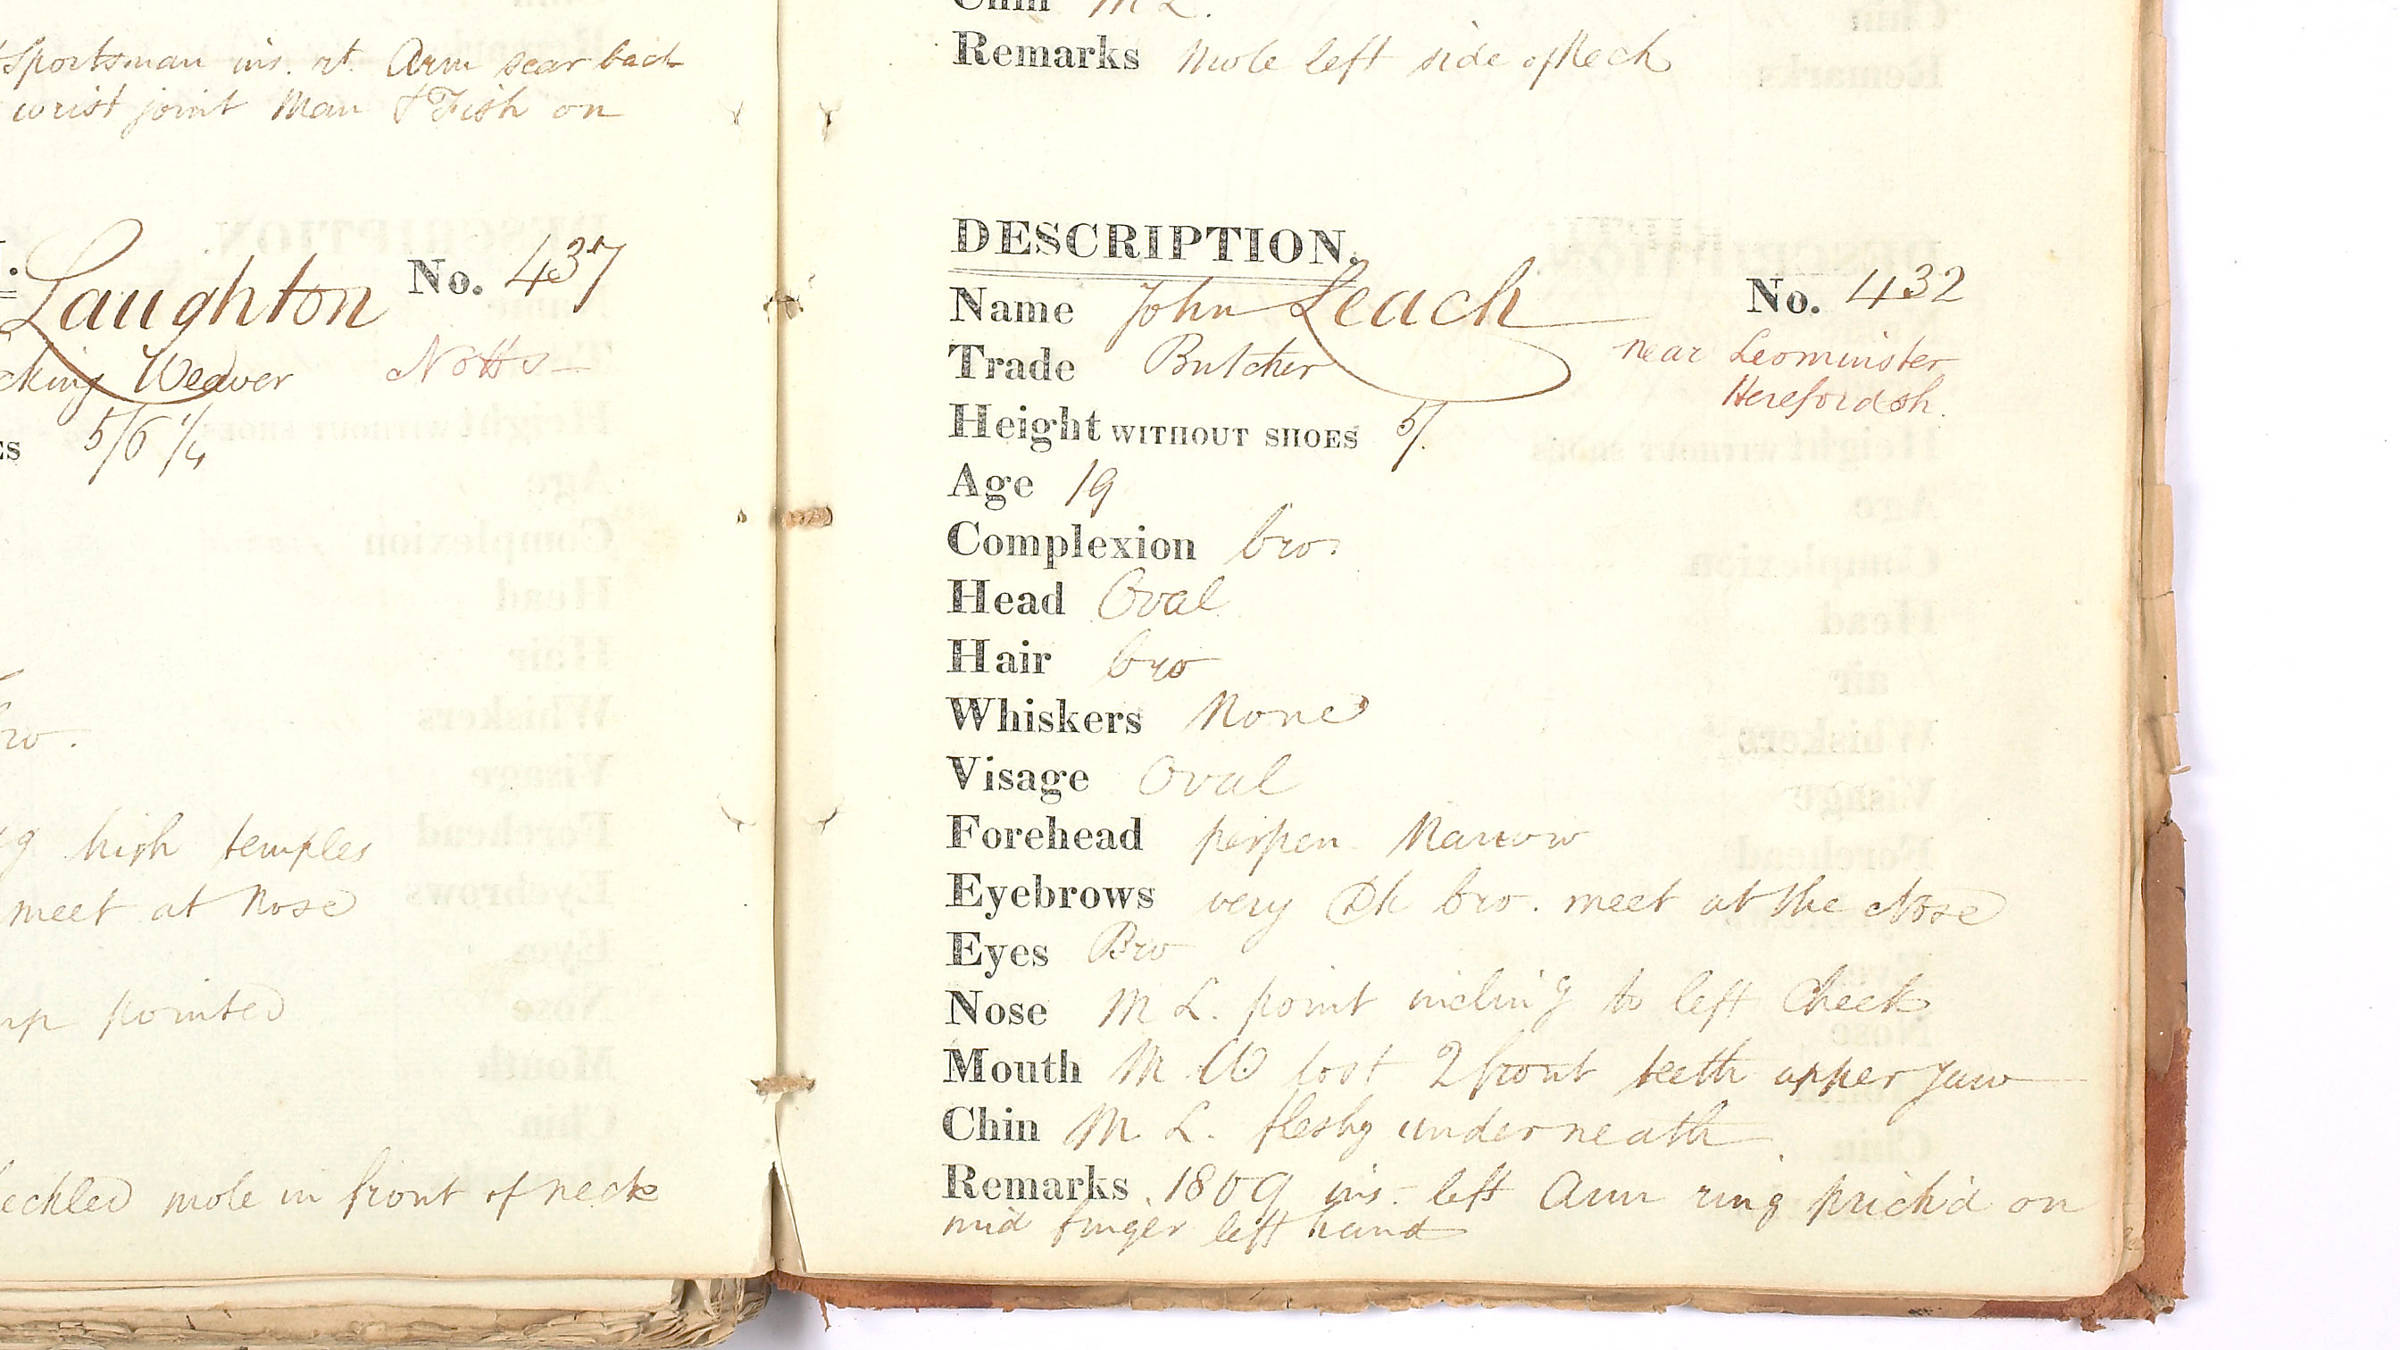 Sportsman ins. rt. Arm scar back
wrist joint Man & Fish on
Laughton No. 437
cking Weaver Notts
ES 5/6 1/4
bro.
high temples
meet at Nose
pointed
eckled mole in front of neck
Chin M L.
Remarks Mole left side of Neck
DESCRIPTION.
Name John Leach No. 432
Trade Butcher near Leominster
Herefordsh.
Height WITHOUT SHOES 5/.
Age 19
Complexion bro.
Head Oval
Hair bro
Whiskers None
Visage Oval
Forehead perpen. Narrow
Eyebrows very Dk bro. meet at the Nose
Eyes Bro
Nose M L. point inclin'g to left Cheek
Mouth M W lost 2 front teeth upper jaw
Chin M L. fleshy underneath
Remarks 1809 ins. left Arm ring prick'd on
mid finger left hand